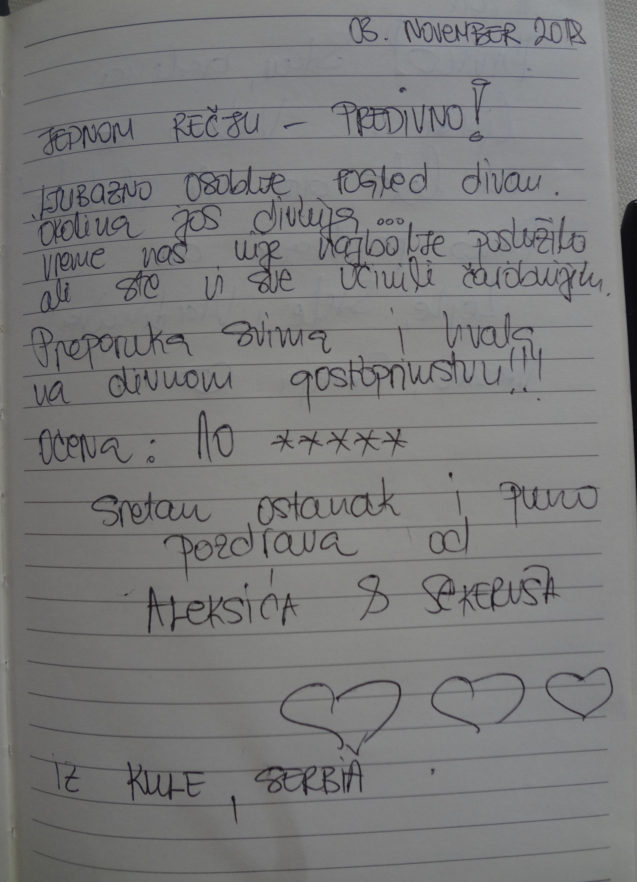 03. NOVEMBER 2018
JEDNOM REČJU – PREDIVNO!
LJUBAZNO osoblje pogled divan.
okolina još divlija...
vreme nas nije najbolje poslužilo
ali ste vi sve učinili čarobnijim.
Preporuka svima i hvala
na divnom gostoprimstvu!!!
OCENA: 10 *****
Sretan ostanak i puno
pozdrava od
ALEKSIĆA & SEKERUŠA
iz KULE, SERBIA